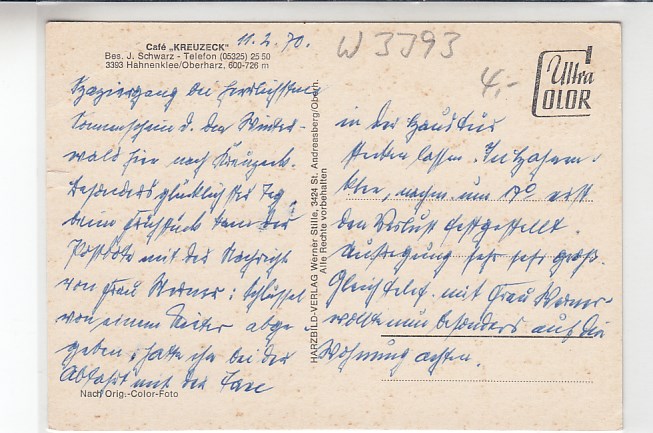 11.2.70.
W 3393
4,-
Café „KREUZECK"
Bes. J. Schwarz - Telefon (05325) 25 50
3393 Hahnenklee/Oberharz, 600-726 m
Ultra
COLOR
Spaziergang bei herrlichstem
Sonnenschein d. den Winter-
wald hier nach Kreuzeck.
Besonders glücklicher Tag,
beim Frühstück kam der
Postbote mit der Nachricht
von Frau Werner: Schlüssel
von einem Mieter abge-
geben, hatte ihn bei der
Abfahrt mit der Taxe
in der Haustür
stecken lassen. In Hahnen-
klee, nachm. um erst
den Verlust festgestellt.
Aufregung sehr sehr groß.
Gleich telef. mit Frau Werner
wollte nun besonders auf die
Wohnung achten.
HARZBILD-VERLAG Werner Stille, 3424 St. Andreasberg/Obern.
Alle Rechte vorbehalten
Nach Orig.-Color-Foto